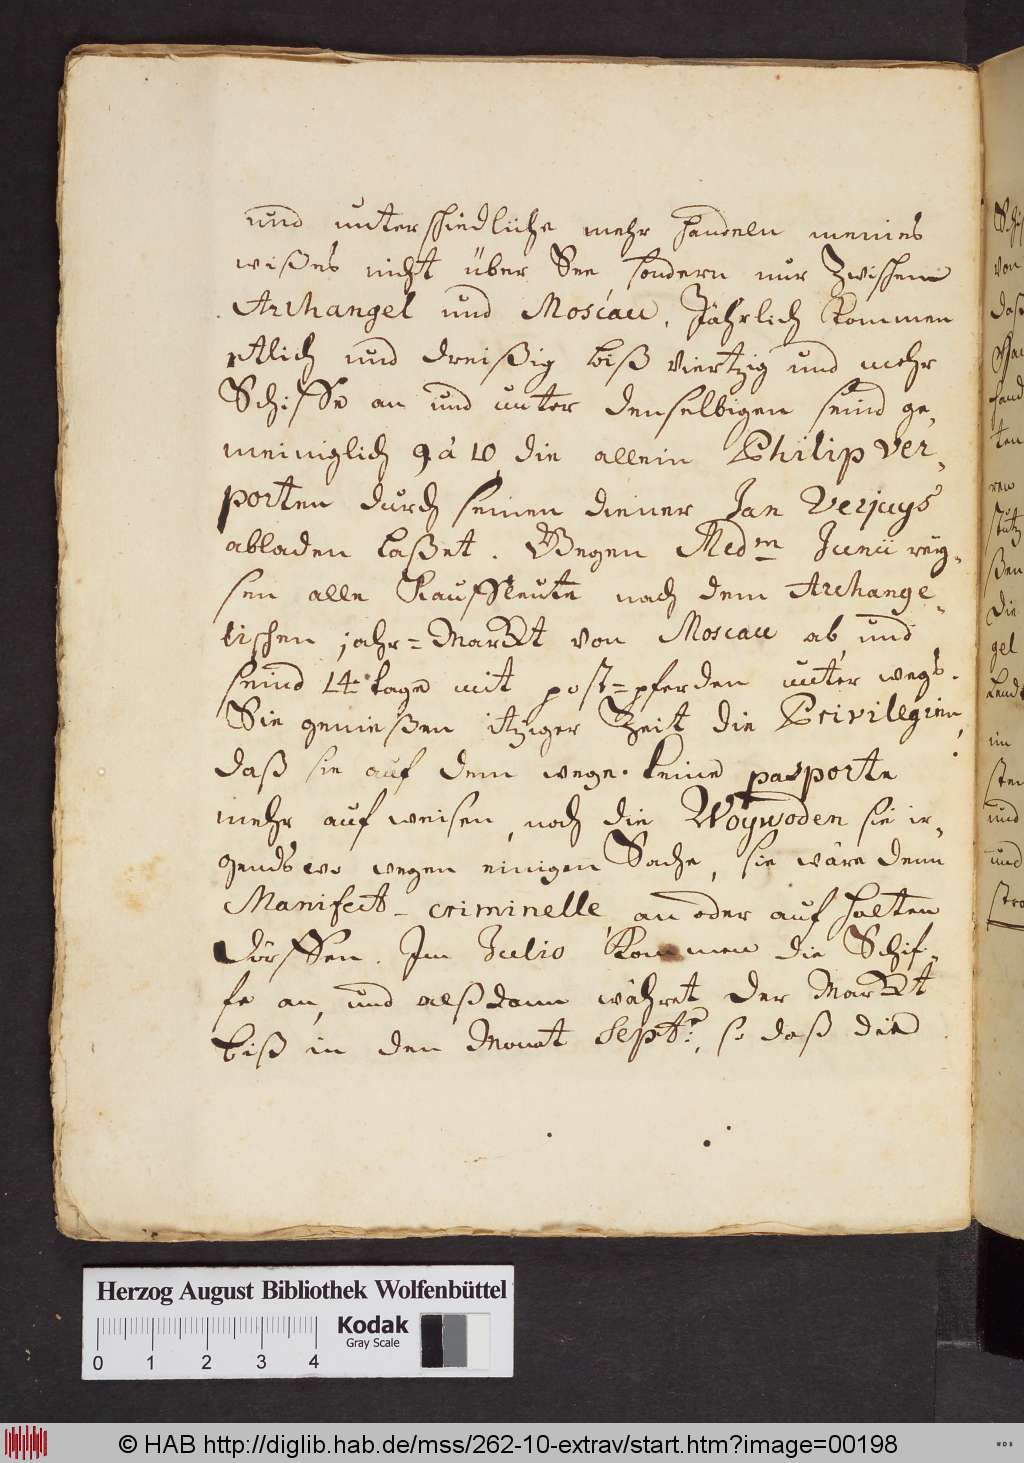 und unterschiedliche mehr handeln meines
wißes nicht über See, sondern nur Zwischen
Archangel und Moscau. Jährlich kommen
etlich und dreißig biß viertzig und mehr
Schiffe an und unter denselbigen seind ge-
meiniglich 9 à 10 die allein Philip Ver-
porten durch seinen diener Jan Verjuys
abladen laßet. Gegen Med<sup>m</sup> Junii rey-
sen alle Kauffleute nach dem Archange-
lischen jahr-Marckt von Moscau ab, und
seind 14 tage mit post-pferden unter wegs.
Sie genießen itziger Zeit die Privilegien,
daß sie auf dem wege keine pasporte
mehr auf weisen, noch die Woywoden sie ir-
gendswo wegen einigen Sache, sie wäre denn
Manifest-criminelle, an oder auf halten
dörffen. Im Julio kommen die Schif-
fe an, und alßdann währet der Marckt
biß in den Monat Sept<sup>r</sup>:, so daß die
Herzog August Bibliothek Wolfenbüttel
Kodak
Gray Scale
0 1 2 3 4
© HAB http://diglib.hab.de/mss/262-10-extrav/start.htm?image=00198